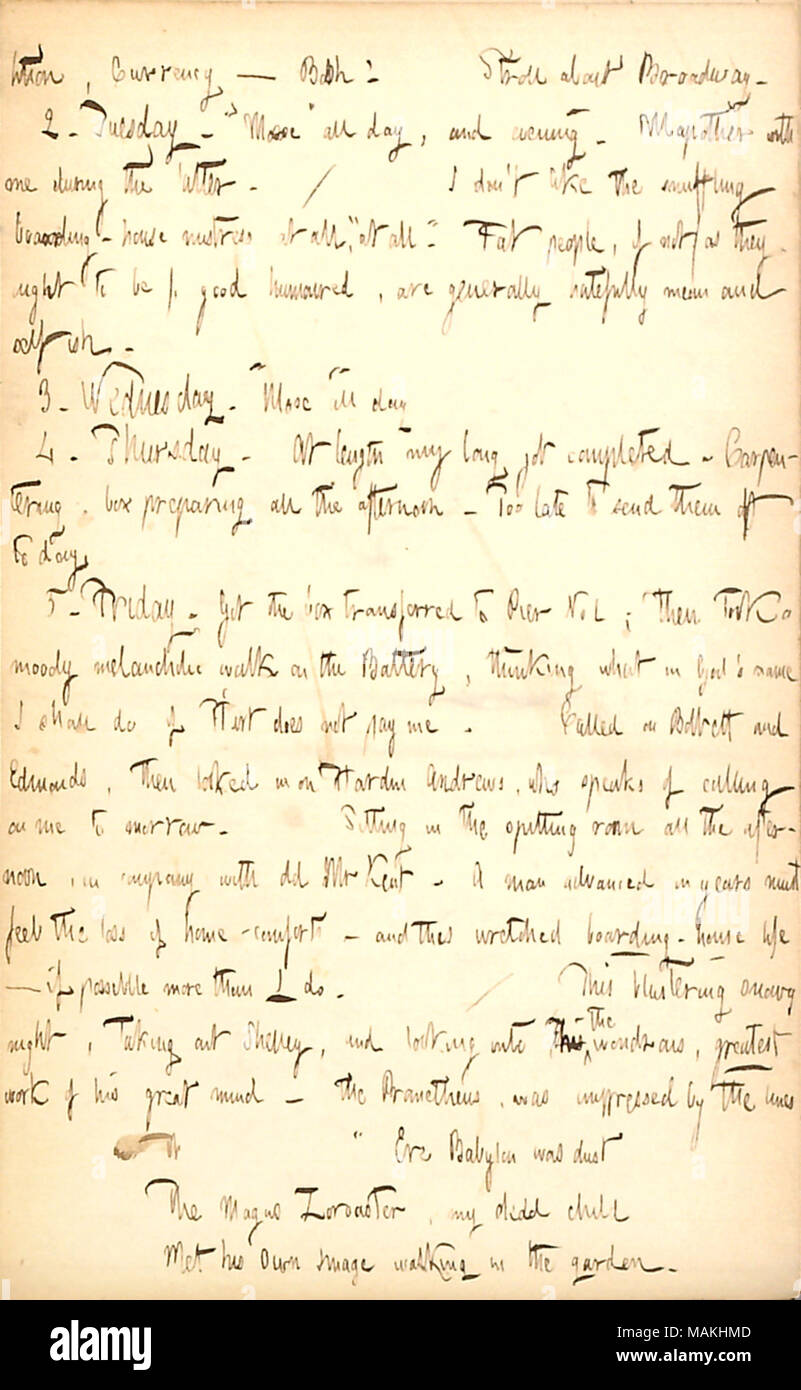 bition, Currency — Bosh!   Stroll about Broadway.
2. Tuesday. "Mose" all day, and evening. Mapother with
me during the latter. / I don't like the snuffling
boarding-house mistress at all, "at all." Fat people, if not (as they
ought to be). good humoured, are generally hatefully mean and
selfish.
3. Wednesday. "Mose" all day
4. Thursday. At length my long job completed. Carpen-
tering, box preparing all the afternoon. Too late to send them off
to day.
5. Friday. Got the box transferred to Pier No 1; then took a
moody melancholic walk on the Battery, thinking what in God's name
I shall do if Hart does not pay me. Called on Bobbett and
Edmonds, then looked in on Hardin Andrews, who speaks of calling
on me to morrow. Sitting in the spitting room all the after-
noon, in company with old Mr Kent. A man advanced in years must
feel the loss of home-comforts — and this wretched boarding-house life
— if possible more than I do. / This blustering snowy
night, taking out Shelley, and looking into the wondrous, greatest
work of his great mind — the Prometheus, was impressed by the lines
"Ere Babylon was dust
The Magus Zoroaster, my dead child
Met his own image walking in the garden.
alamy
Image ID: MAKHMD
www.alamy.com